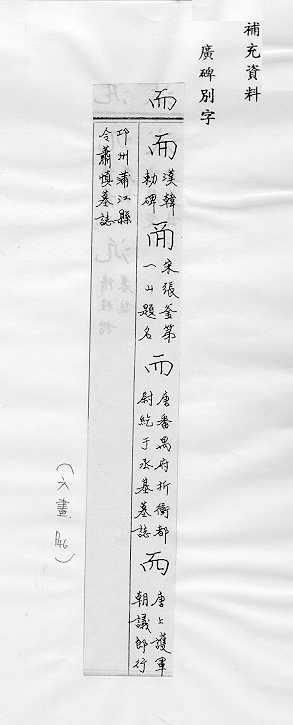 補充資料
廣碑別字
而
而 漢韓
勅碑
而 宋張釜第
一山題名
而 唐番禺府折衝都
尉紇于承基墓誌
而 唐上護軍
朝議郎行
邛州蒲江縣
令蕭慎墓誌
(六畫 P46)